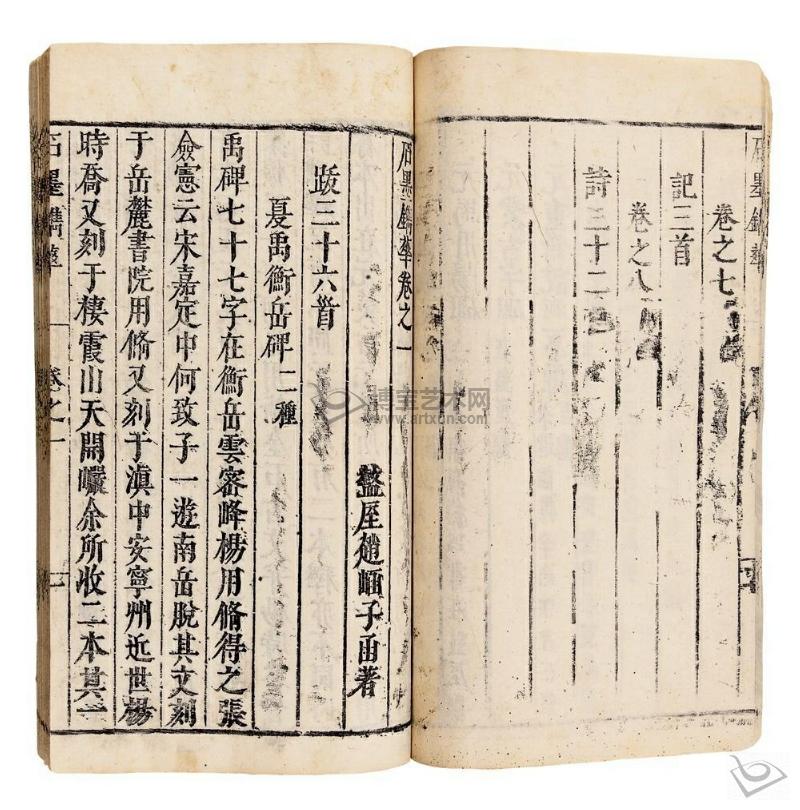 石墨鐫華
卷之七
記三首
卷之八
詩三十二首
石墨鐫華卷之一
盩厔趙崡子函著
跋三十六首
夏禹衡岳碑二種
禹碑七十七字在衡岳雲密峰楊用脩得之張
僉憲云宋嘉定中何致子一遊南岳脫其文刻
于岳麓書院用脩又刻于滇中安寧州近世楊
時喬又刻于棲霞山天開巖余所收二本其一
石墨鐫華
卷之一
一
博宝艺术网
www.artxun.com